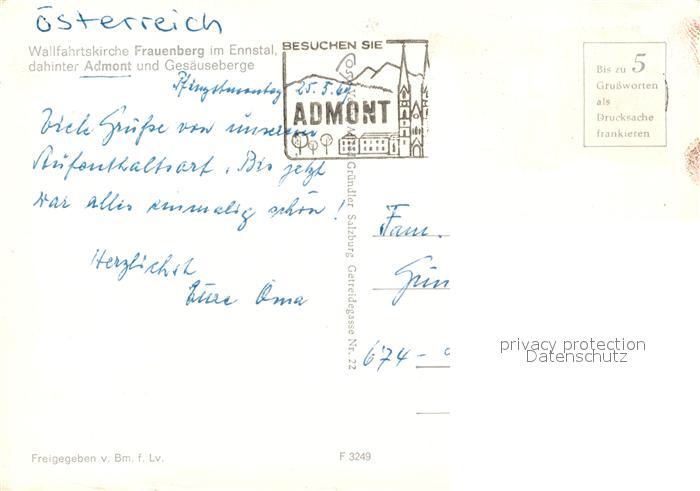 Österreich
Wallfahrtskirche Frauenberg im Ennstal,
dahinter Admont und Gesäuseberge
Pfingstmontag 25.5.69
Viele Grüße von unserem
Aufenthaltsort. Bis jetzt
war alles einmalig schön!
Herzlichst
Eure Oma
BESUCHEN SIE
ADMONT
Gründler Salzburg Getreidegasse Nr. 22
Bis zu 5
Grußworten
als
Drucksache
frankieren
Fam.
674 -
privacy protection
Datenschutz
Freigegeben v. Bm. f. Lv.
F 3249